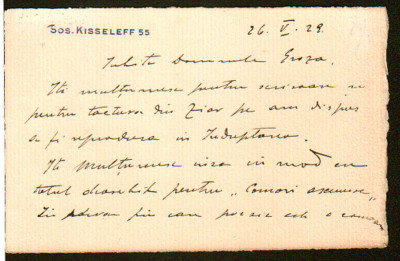 SOS. KISSELEFF 55
26. V. 29.
Iubite Domnule Groza,
Îți mulțumesc pentru scrisoare și
pentru tactura din Ziar pe am dispus
a fi reprodusa in Indreptarea.
Iți mulțumesc insa in mod cu
totul deosebit pentru „Comori ascunse"
din care poezie este o